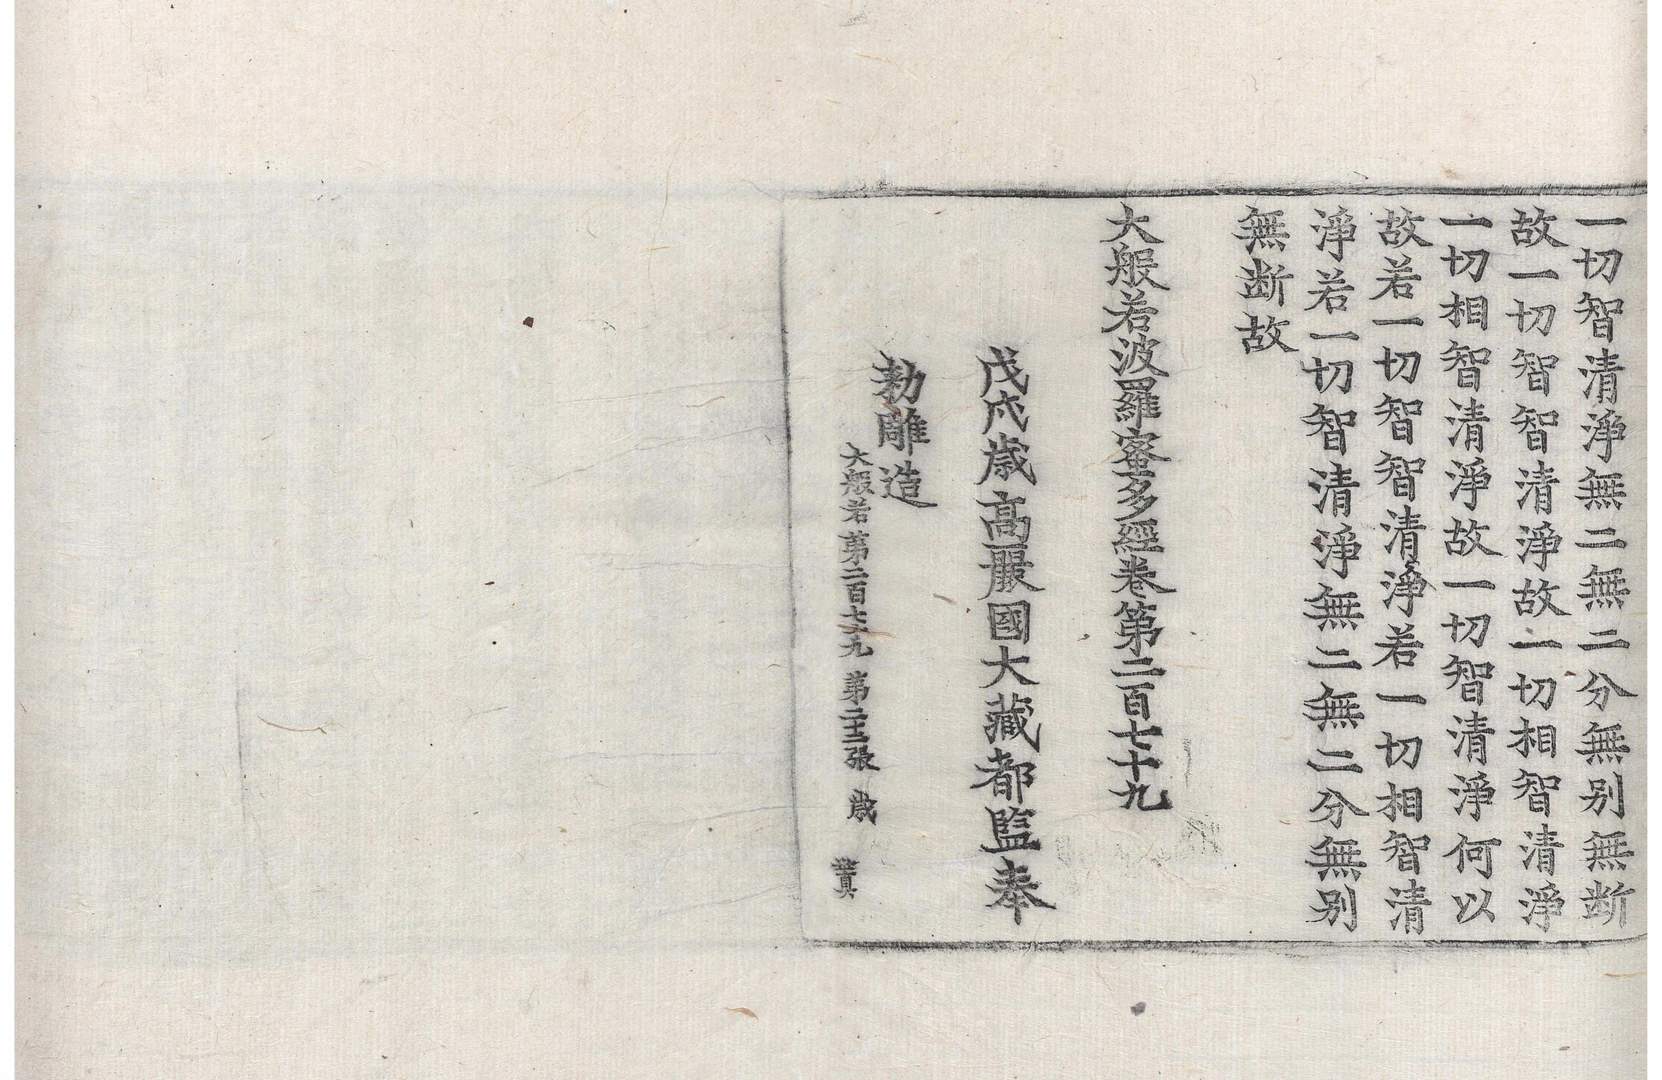 一切智清淨無二無二分無别無断
故一切智智清淨故一切相智清淨
一切相智清淨故一切智清淨何以
故若一切智智清淨若一切相智清
淨若一切智清淨無二無二分無别
無断故
大般若波羅蜜多經卷第二百七十九
戊戌歲高麗國大藏都監奉
勅雕造
大般若第二百七十九 第 張 歲